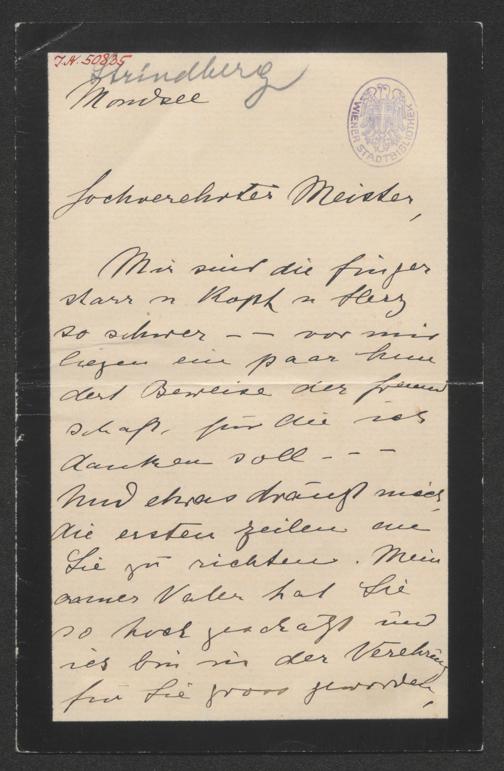 J.N. 50835
Strindberg
Mondsee
WIENER STADTBIBLIOTHEK
Hochverehrter Meister,
Mir sind die finger
starr u Kopf u Herz
so schwer – – vor mir
liegen ein paar hun
dert Beweise der freund
schaft, für die ich
danken soll – – –
Und etwas drängt mich,
die ersten zeilen an
Sie zu richten. Mein
armer Vater hat Sie
so hoch geschätzt und
ich bin in der Verehrung
für Sie gross geworden,